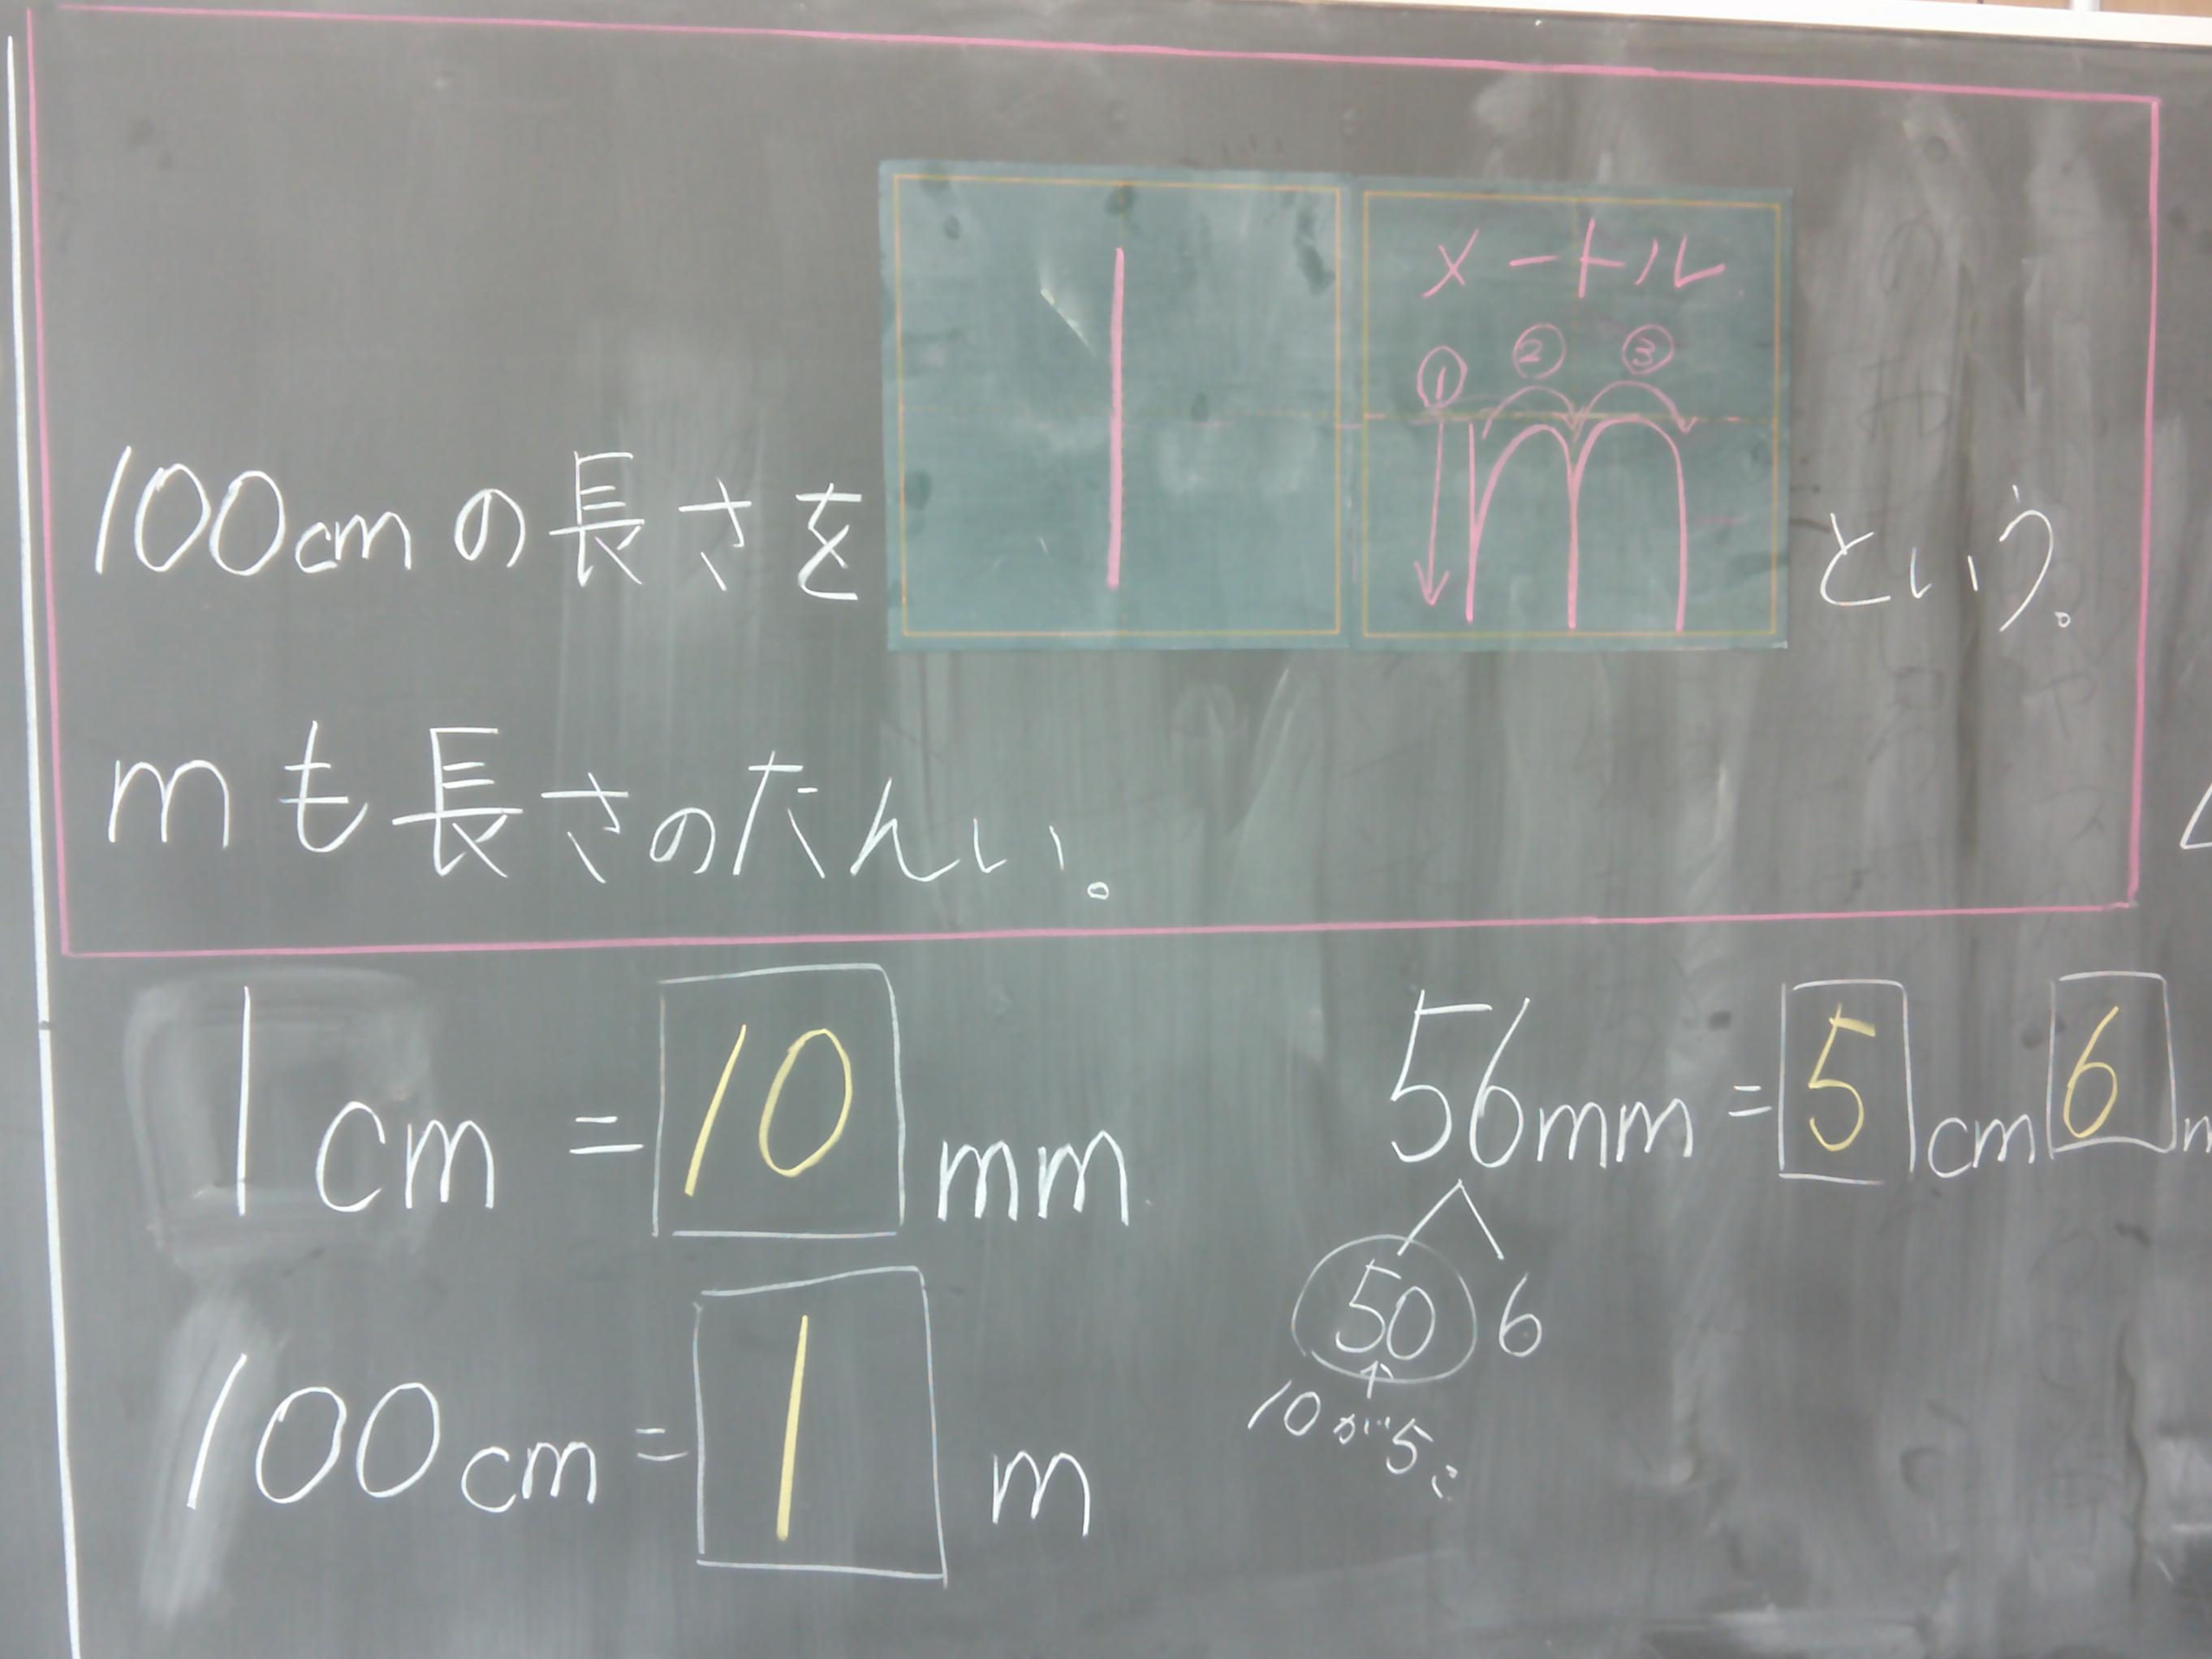 メートル
① ② ③
100cmの長さを 1 m という。
mも長さのたんい。
1cm = 10 mm
100cm = 1 m
56mm = 5 cm 6 m
50 6
10が5こ